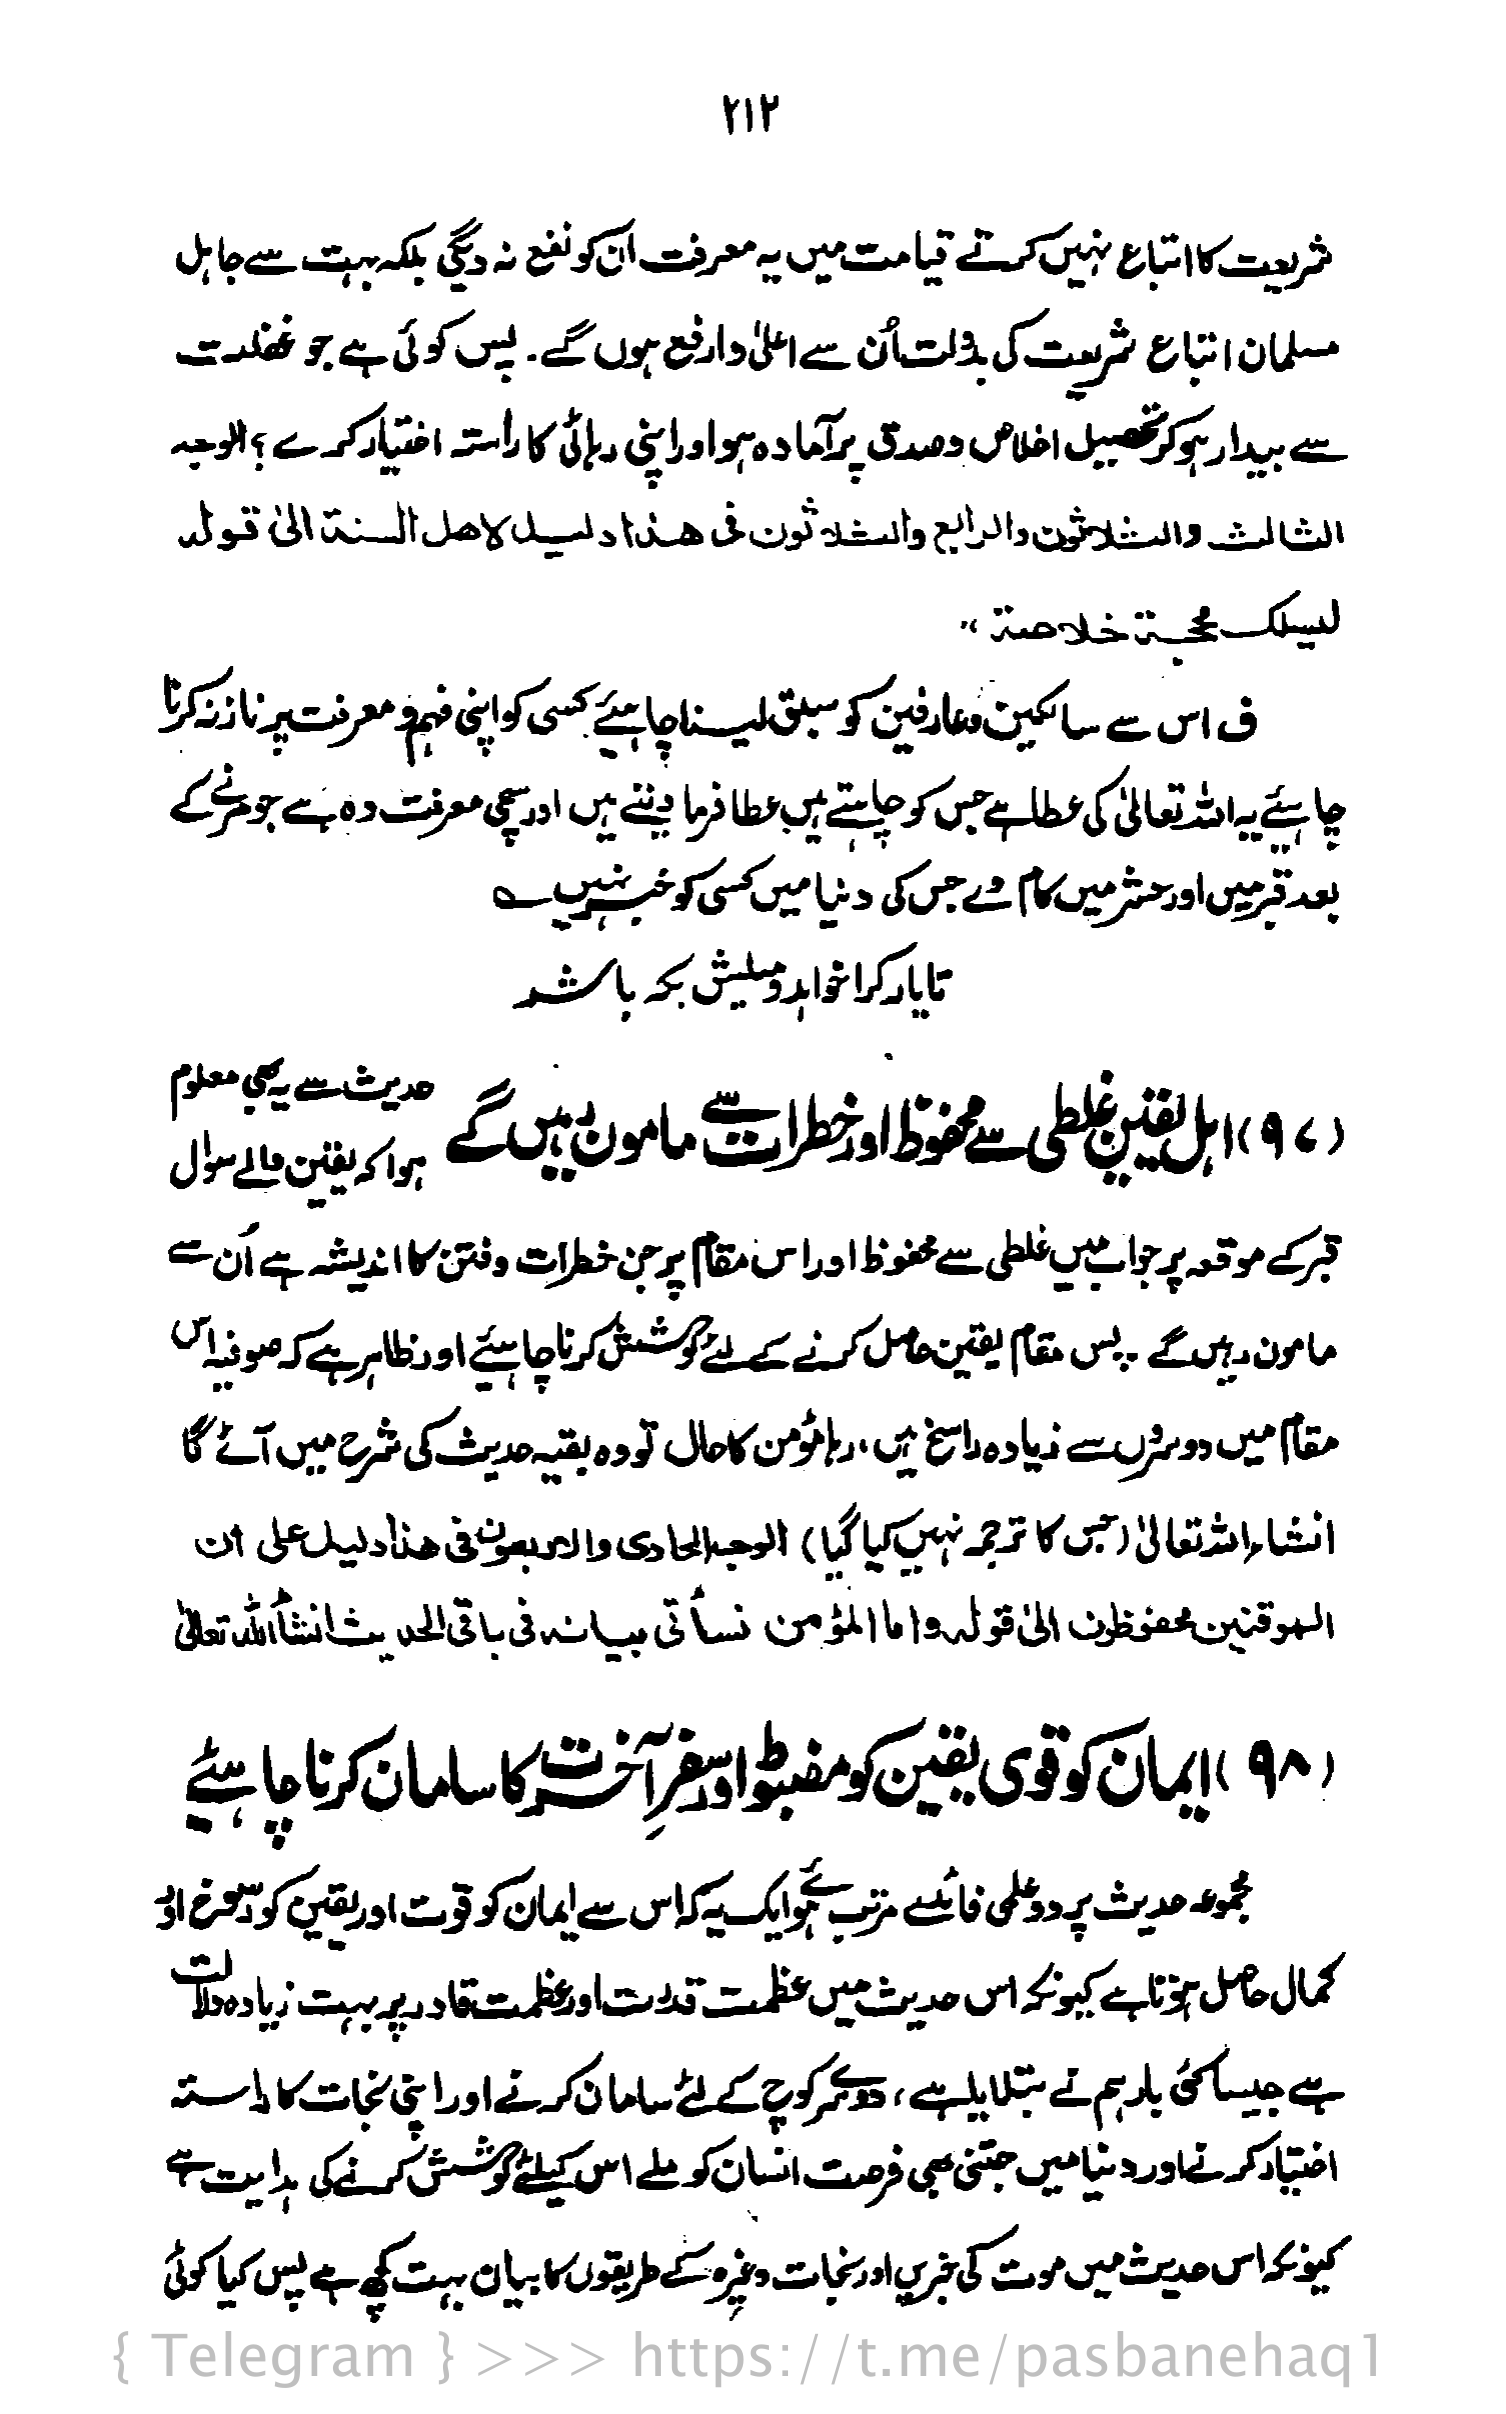 ۲۱۲
شریعت کا اتباع نہیں کرتے قیامت میں یہ معرفت ان کو نفع نہ دیگی بلکہ بہت سے جاہل
مسلمان اتباع شریعت کی بدولت اُن سے اعلیٰ وارفع ہوں گے۔ پس کوئی ہے جو غفلت
سے بیدار ہوکر تحصیل اخلاص وصدق پر آمادہ ہو اور اپنی رہائی کا راستہ اختیار کرے؟ الوجہ
الثالث والثلاثون والرابع والثلاثون فی ھذا دلیل لاھل السنۃ الیٰ قولہ
لیسلک محجۃ خلاصۃ "
ف اس سے سالکین وعارفین کو سبق لینا چاہئیے کسی کو اپنی فہم و معرفت پر ناز نہ کرنا
چاہیئے یہ اللہ تعالیٰ کی عطا ہے جس کو چاہتے ہیں عطا فرما دیتے ہیں اور سچی معرفت وہ ہے جو مرنے کے
بعد قبر میں اور حشر میں کام دے جس کی دنیا میں کسی کو خبر نہیں ؎
تا یار کرا خواہد و میلش بکہ باشد
(۹۷) اہل یقین غلطی سے محفوظ اور خطرات سے مامون رہیں گے
حدیث سے یہ بھی معلوم
ہوا کہ یقین والے سوال
قبر کے موقعہ پر جواب میں غلطی سے محفوظ اور اس مقام پر جن خطرات وفتن کا اندیشہ ہے اُن سے
مامون رہیں گے پس مقام یقین حاصل کرنے کے لئے کوشش کرنا چاہیئے اور ظاہر ہے کہ صوفیہ اس
مقام میں دوسروں سے زیادہ راسخ ہیں، رہا مؤمن کا حال تو وہ بقیہ حدیث کی شرح میں آئے گا
انشاء اللہ تعالیٰ (جس کا ترجمہ نہیں کیا گیا) الوجہ الحادی والاربعون فی ھذا دلیل علی ان
الموقنین محفوظون الیٰ قولہ واما المؤمن نسأتی بیانہ فی باقی الحدیث انشأ اللہ تعالیٰ
(۹۸) ایمان کو قوی یقین کو مضبوط اور سفرِ آخرت کا سامان کرنا چاہئے
مجموعہ حدیث پر دو علمی فائدے مرتب ہوئے ایک یہ کہ اس سے ایمان کو قوت اور یقین کو رسوخ اور
کمال حاصل ہوتا ہے کیونکہ اس حدیث میں عظمت قدرت اور عظمت قادر پر بہت زیادہ دلالت
ہے جیسا کئی بار ہم نے بتلایا ہے، دوسرے کوچ کے لئے سامان کرنے اور اپنی نجات کا راستہ
اختیار کرنے اور دنیا میں جتنی بھی فرصت انسان کو ملے اس کیلئے کوشش کرنے کی ہدایت ہے
کیونکہ اس حدیث میں موت کی خبریں اور نجات وغیرہ کے طریقوں کا بیان بہت کچھ ہے پس کیا کوئی
{ Telegram } >>> https://t.me/pasbanehaq1